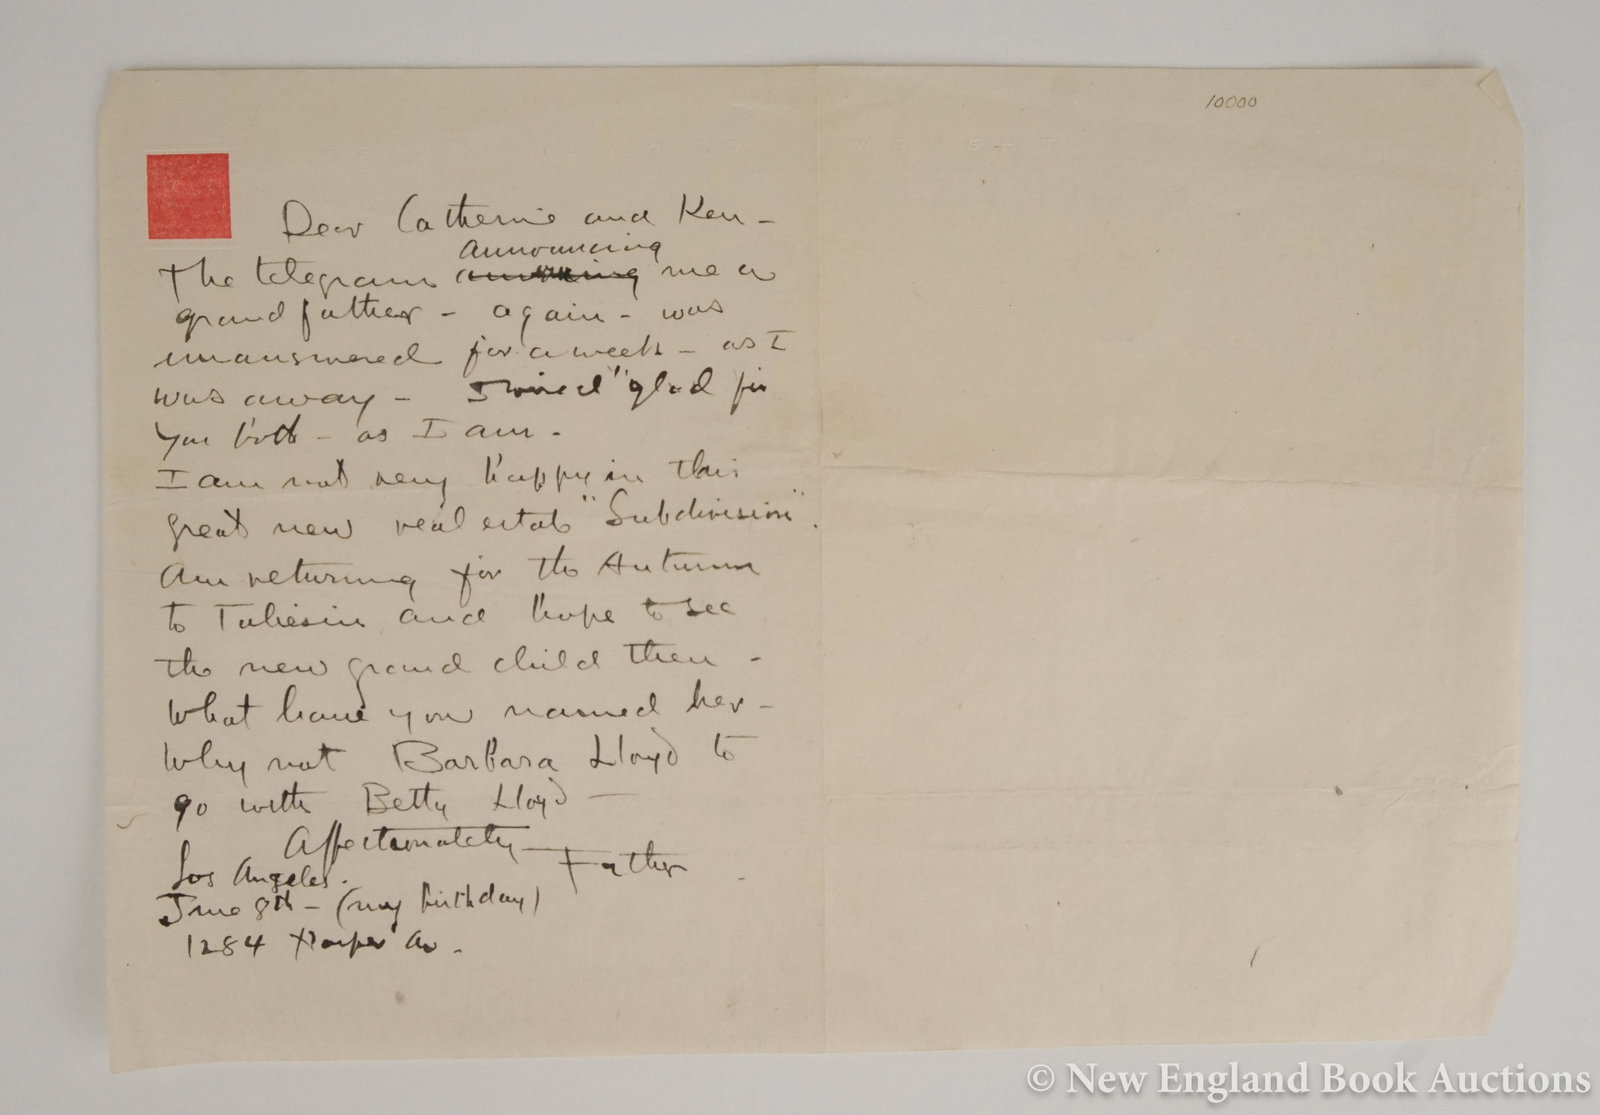 10000
WRIGHT
Dear Catherine and Ken -
announcing
The telegram me a
grandfather - again - was
unanswered for a week - as I
was away - I wired "glad for
you both - as I am -
I am not very happy in this
great new real estate "Subdivision".
Am returning for the Autumn
to Taliesin and hope to see
the new grand child then -
What have you named her -
Why not Barbara Lloyd to
go with Betty Lloyd -
Affectionately -
Father
Los Angeles.
June 8th - (my birthday)
1284 Harper Av.
© New England Book Auctions